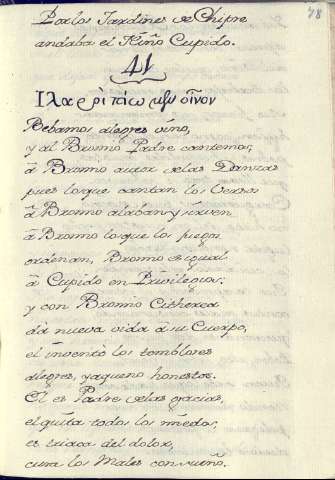 78
Por los Jardines de Chipre
andaba el Niño Cupido.
41
Ιλαροὶ πίωμεν οἶνον
Bebamos alegres vino,
y al Bromio Padre cantemos,
â Bromio autor de las Danzas
pues lo que cantan los Versos
â Bromio alaban y
â Bromio lo que los juegos
ordenan, Bromio es igual
â Cupido en Privilegios:
y con Bromio Citherea
dà nueva vida â su Cuerpo,
el inventò los temblores
alegres, ya que no honestos.
El es Padre de las gracias,
el quita todos los miedos,
es triaca del dolor,
cura los Males con sueño.